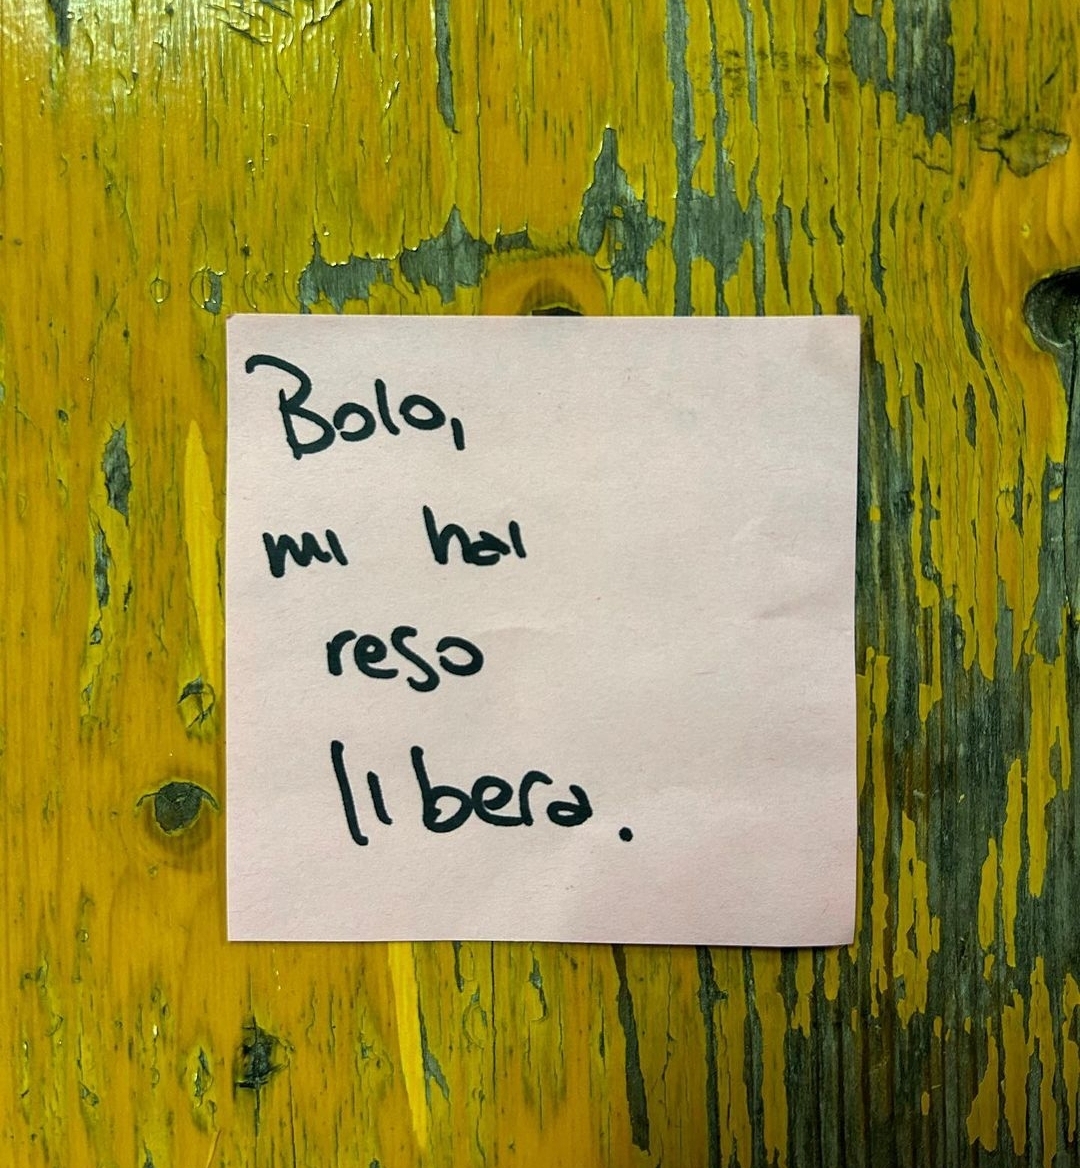 Bolo,
mi hai
reso
libera.